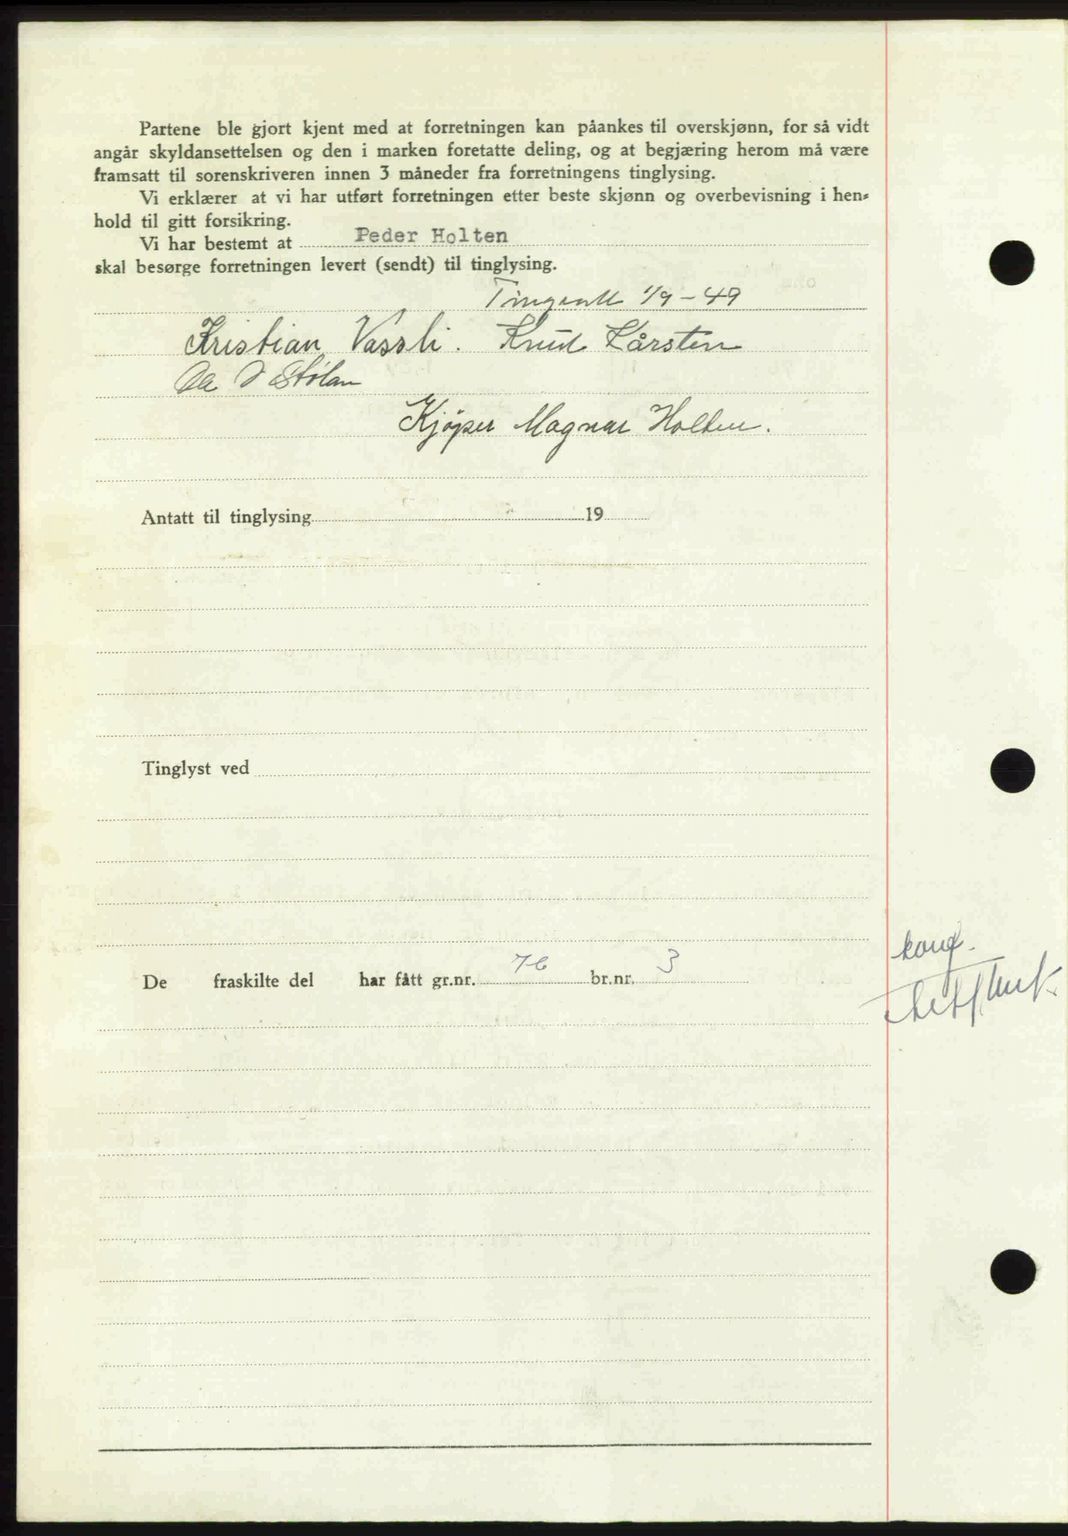 Partene ble gjort kjent med at forretningen kan påankes til overskjønn, for så vidt
angår skyldansettelsen og den i marken foretatte deling, og at begjæring herom må være
framsatt til sorenskriveren innen 3 måneder fra forretningens tinglysing.
Vi erklærer at vi har utført forretningen etter beste skjønn og overbevisning i hen-
hold til gitt forsikring.
Vi har bestemt at Peder Holten
skal besørge forretningen levert (sendt) til tinglysing.
1/9-49
Kristian Vassli. Knut Kårsten
Kjøper Magnar Holten.
Antatt til tinglysing 19
Tinglyst ved
De fraskilte del har fått gr.nr. 76 br.nr. 3